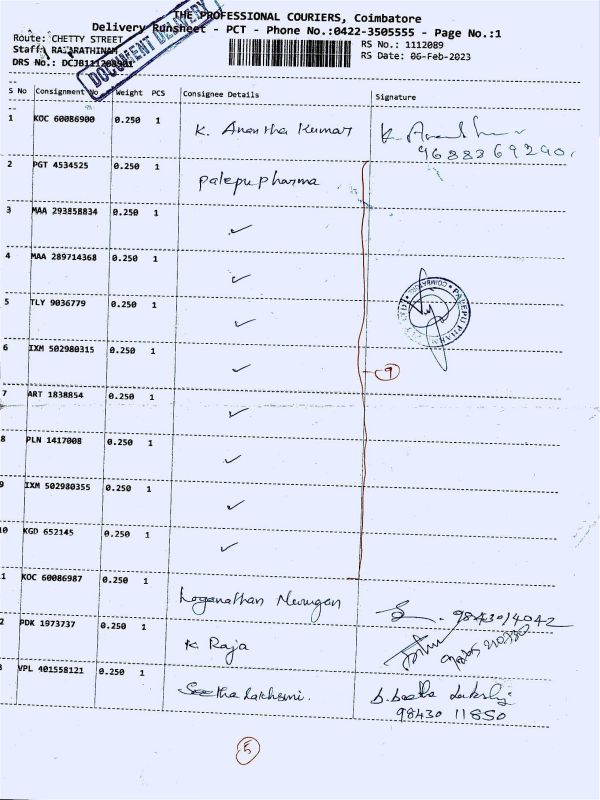 THE PROFESSIONAL COURIERS, Coimbatore
Delivery Runsheet - PCT - Phone No.:0422-3505555 - Page No.:1
Route: CHETTY STREET
RS No.: 1112089
Staff: RAJARATHINAM
RS Date: 06-Feb-2023
DRS No.: DCJB111208901
DOCUMENT DELIVERY
S No Consignment No Weight PCS Consignee Details Signature
1 KOC 60086900 0.250 1 K. Anantha Kumar
9688369290
2 PGT 4534525 0.250 1 palepu pharma
3 MAA 293858834 0.250 1 ✓
4 MAA 289714368 0.250 1 ✓
5 TLY 9036779 0.250 1 ✓
PALEPU PHARMA COIMBATORE
6 IXM 502980315 0.250 1 ✓
9
7 ART 1838854 0.250 1 ✓
8 PLN 1417008 0.250 1 ✓
9 IXM 502980355 0.250 1 ✓
10 KGD 652145 0.250 1 ✓
1 KOC 60086987 0.250 1 Loganathan Murugan 9843014042
2 PDK 1973737 0.250 1 K Raja
3 VPL 401558121 0.250 1 Seetha lakhsmi. b.Seetha Lakshmi
98430 11850
5